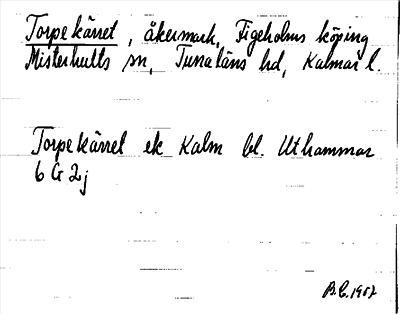 Torpekärret, åkermark, Figeholms köping
Misterhults sn, Tunaläns hd, Kalmar l.
Torpekärret ek Kalm bl. Uthammar
6 G 2 j
B.C. 1957